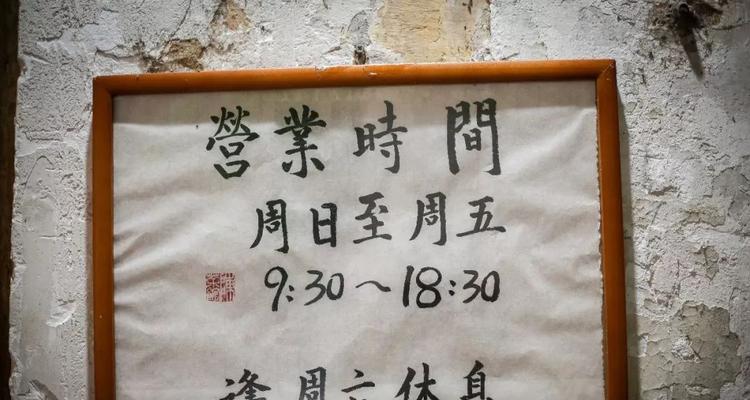 營業時間
周日至周五
9:30～18:30
逢周六休息